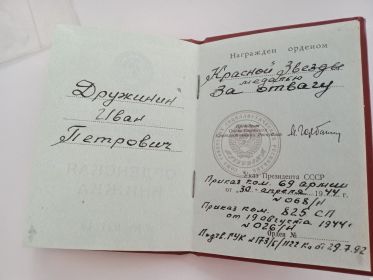 Дружинин
Иван
Петрович
Награжден орденом
"Красной Звезды"
медалью
За отвагу
Указ Президента СССР
Приказ ком. 69 армии
от 30 апреля 1944 г.
№ 068/н
Приказ ком. 825 СП
от 19 августа 1944 г.
№ 026/н
Орден №
от 29.7.92